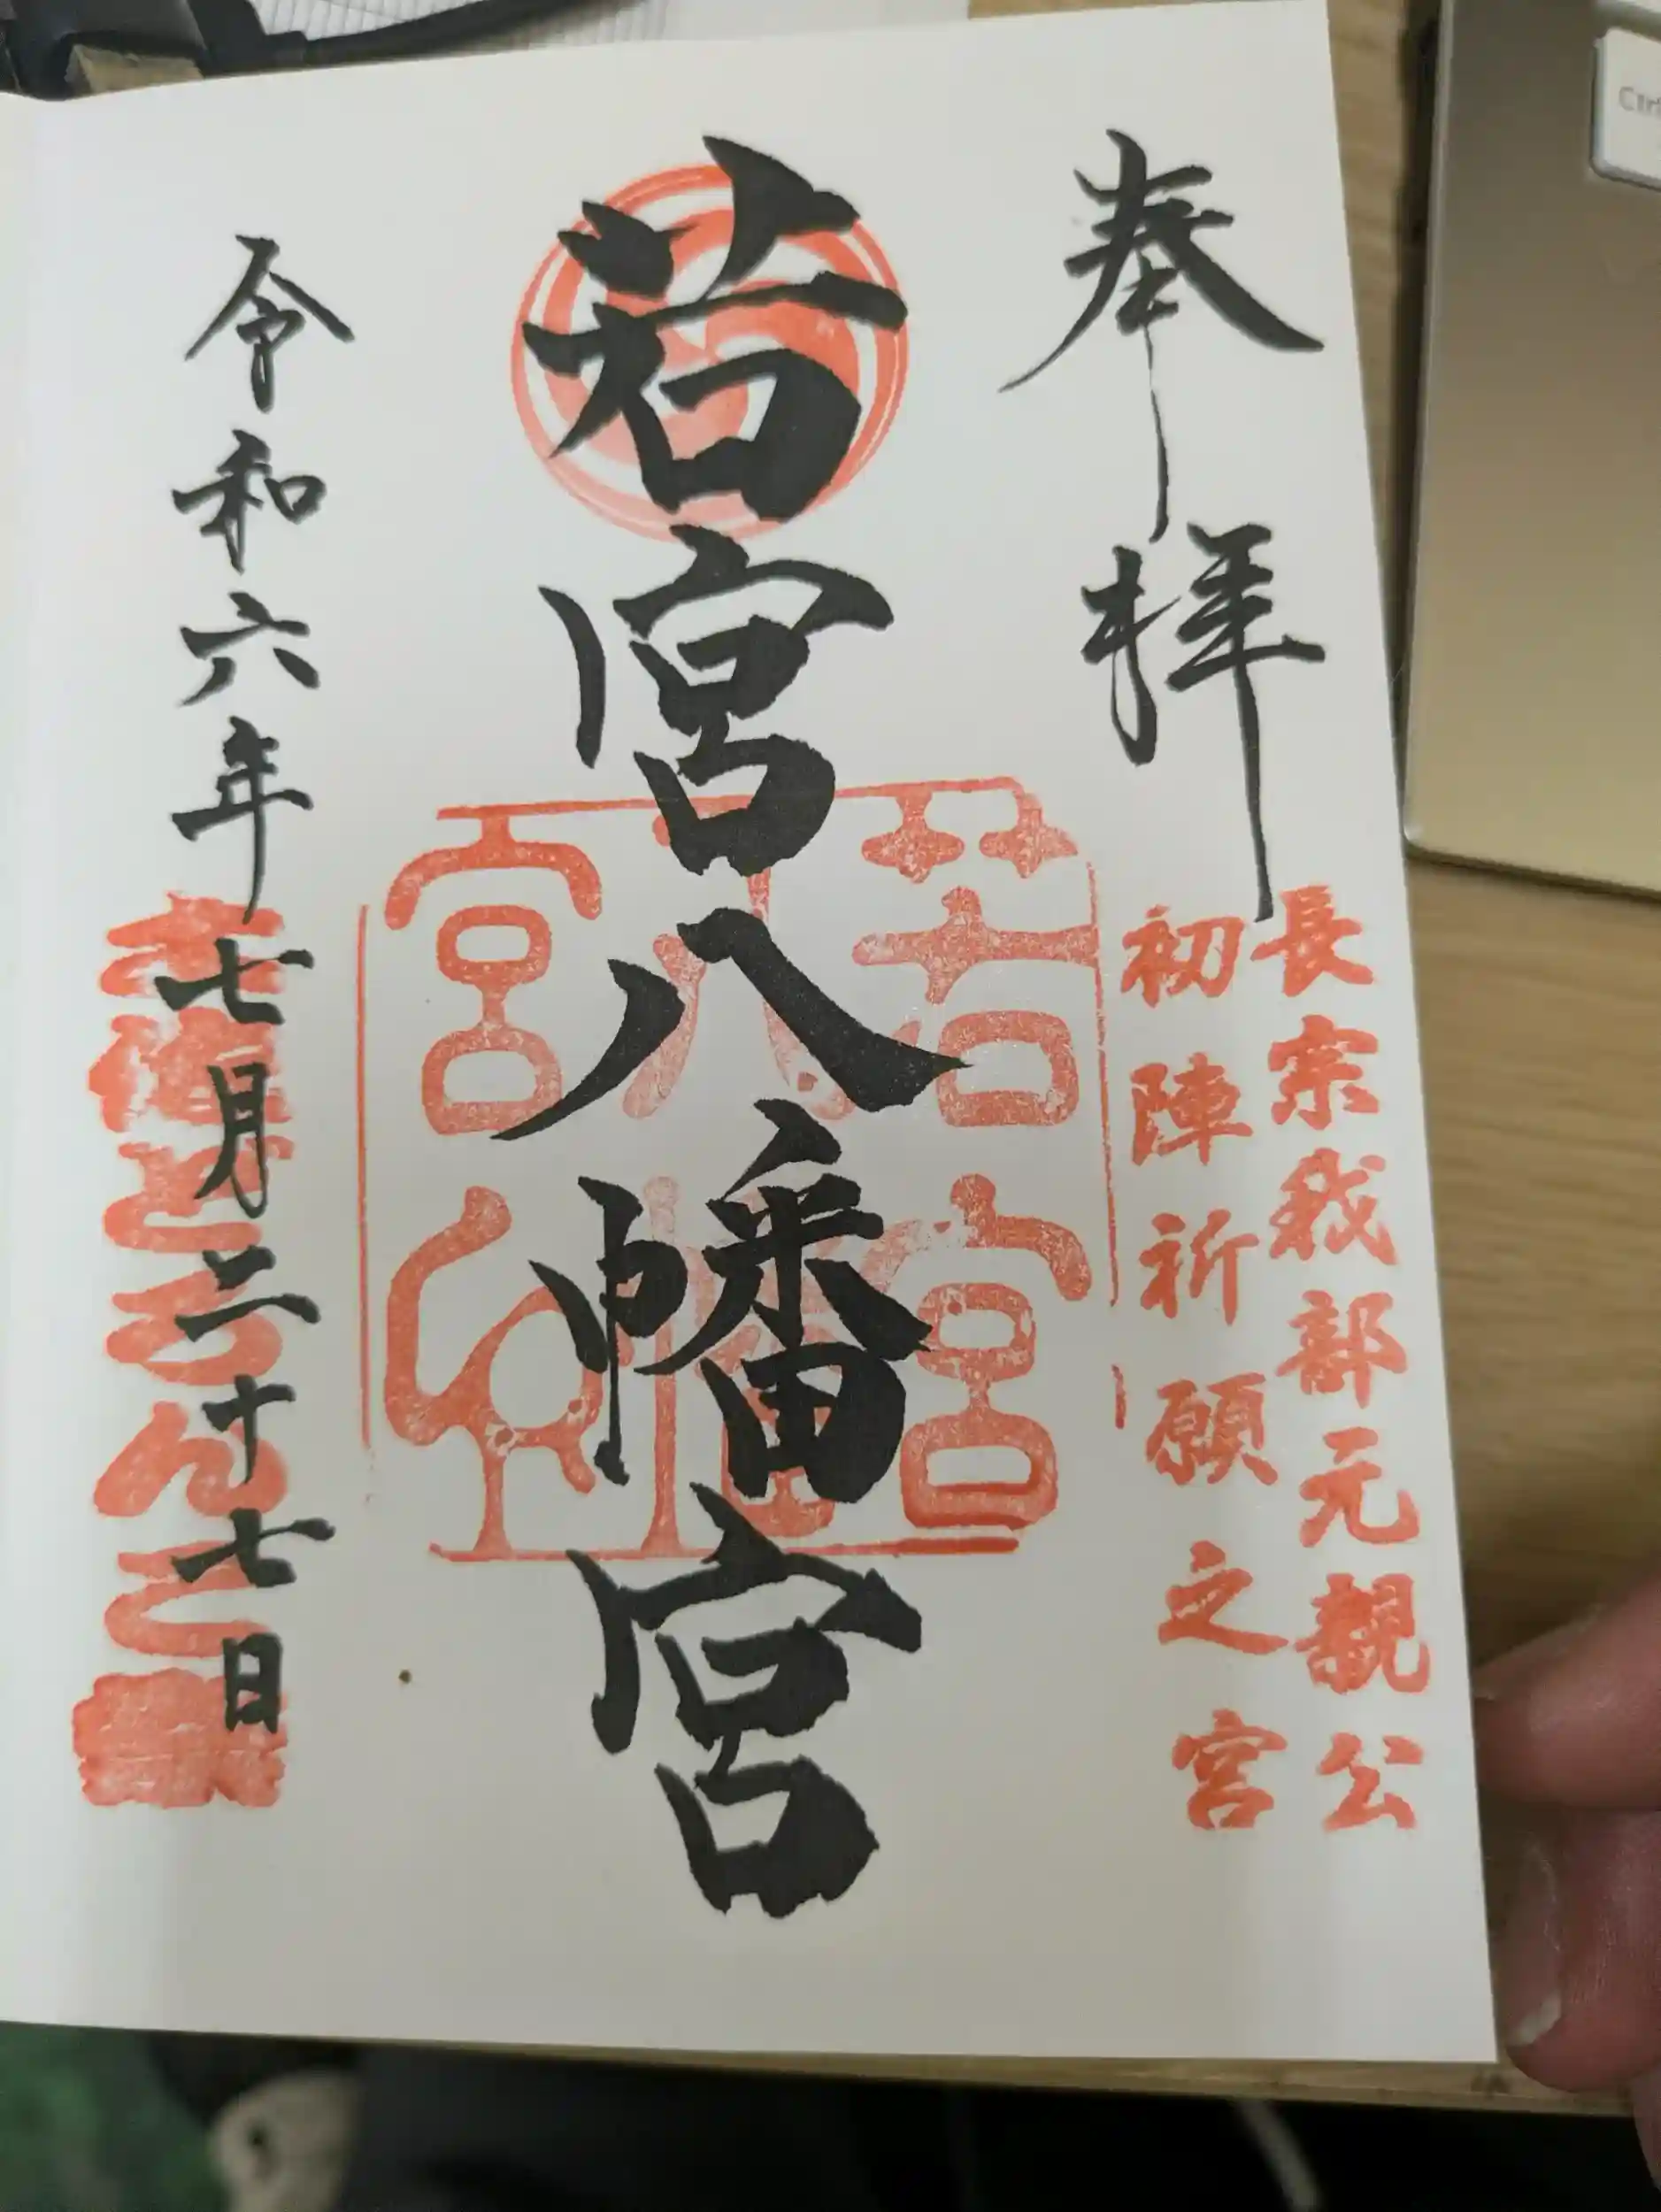 奉拝
長宗我部元親公
初陣祈願之宮
若宮八幡宮
若宮
八幡
宮
令和六年七月二十七日
Ctrl